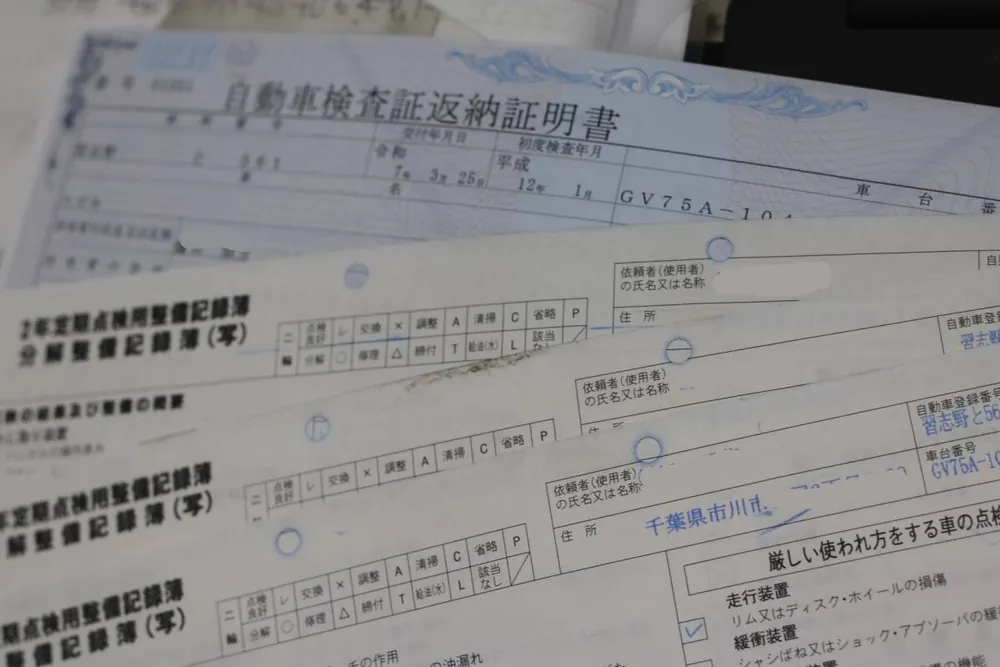 番号
自動車検査証返納証明書
交付年月日
初度検査年月
令和
平成
7年 3月 25日
12年 1月
名
GV75A-104
車 台 番
2年定期点検用整備記録簿
分解整備記録簿(写)
点検良好 レ 交換 × 調整 A 清掃 C 省略 P
分解 ○ 修理 △ 締付 T 給油(水) L 該当なし
依頼者(使用者)
の氏名又は名称
住 所
検の結果及び整備の概要
年定期点検用整備記録簿
解整備記録簿(写)
点検良好 レ 交換 × 調整 A 清掃 C 省略 P
依頼者(使用者)
の氏名又は名称
自動車登
習志野
期点検用整備記録簿
整備記録簿(写)
二輪
点検良好 レ 交換 × 調整 A 清掃 C 省略 P
分解 ○ 修理 △ 締付 T 給油(水) L 該当なし
依頼者(使用者)
の氏名又は名称
住 所
千葉県市川市
自動車登録番号
習志野と56
車台番号
GV75A-10
厳しい使われ方をする車の点検
走行装置
リム又はディスク・ホイールの損傷
緩衝装置
シャシばね又はショック・アブソーバの緩
の作用
の油漏れ
の機能